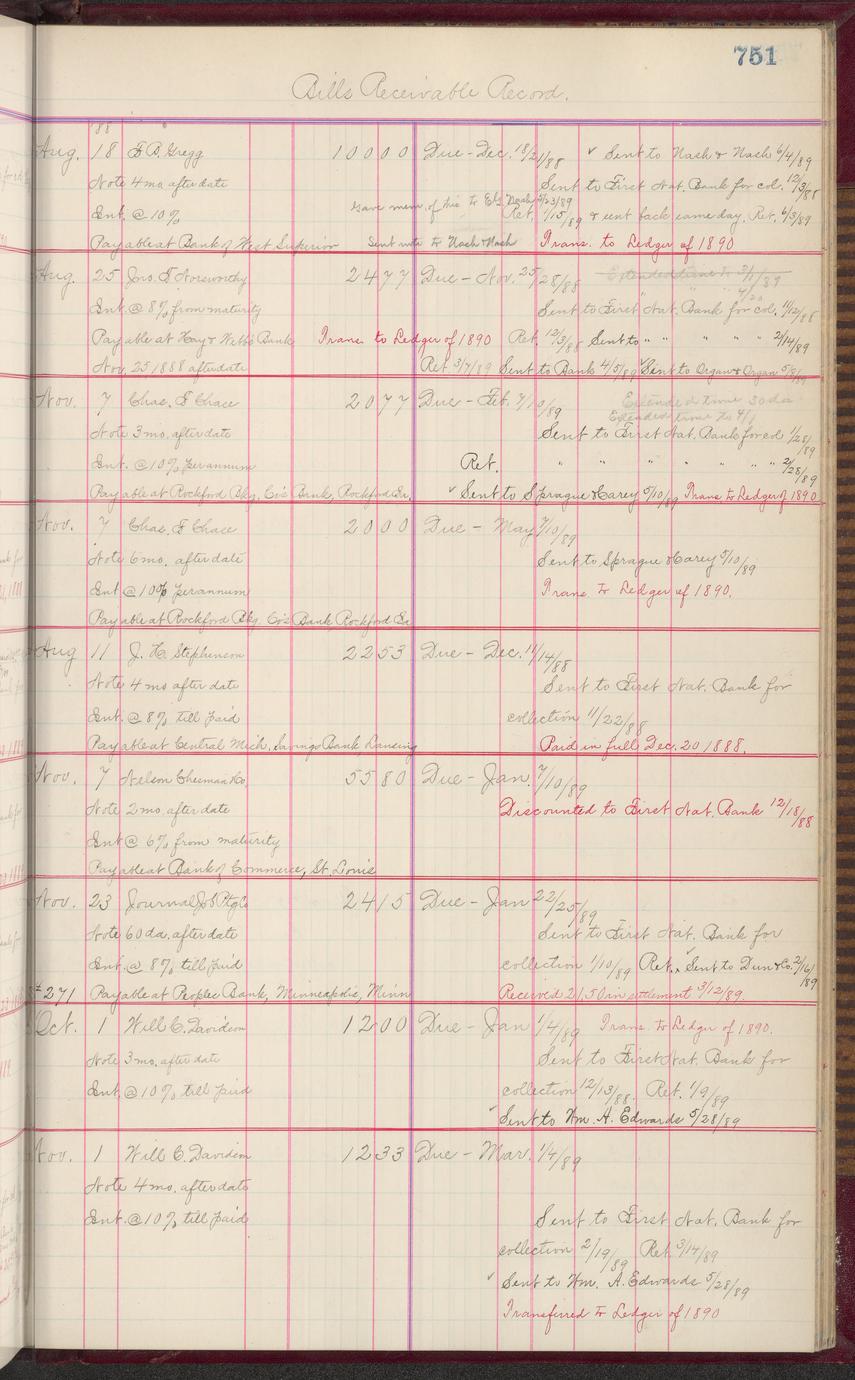 751
Bills Receivable Record.
88
Aug. 18 F. B. Gregg 10000 Due - Dec. 18/21/88 ✓ Sent to Nash & Nash 6/4/89
Note 4 mo after date Sent to First Nat. Bank for col. 12/3/88
Gave mem. of this to E.G. Nash 5/23/89
Int. @ 10% Ret. 1/15/89 & sent back same day. Ret. 6/3/89
Payable at Bank of West Superior Sent note to Nash & Nash Trans. to Ledger of 1890
Aug. 25 Jno. F. Norsworthy 2477 Due - Nov. 25/28/88 Extended time to 3/1/89
" " " 4/20
Int. @ 8% from maturity Sent to First Nat. Bank for col. 11/12/88
Payable at Hay & Webb's Bank Trans. to Ledger of 1890 Ret. 12/3/88 Sent to " " " " " 2/14/89
Nov. 25 1888 after date Ret. 3/7/89 Sent to Bank 4/5/89 ✓ Sent to Organ & Organ 5/8/89
Nov. 7 Chas. F. Chace 2077 Due - Feb. 7/10/89 Extended time 30 da
Extended time to 4/1
Note 3 mo. after date Sent to First Nat. Bank for col 1/28/89
Int. @ 10% per annum Ret. " " " " " " " 2/28/89
Payable at Rockford Bkg. Co's Bank, Rockford Ia. ✓ Sent to Sprague & Carey 5/10/89 Trans to Ledger of 1890
Nov. 7 Chas. F. Chace 2000 Due - May 7/10/89
Note 6 mo. after date Sent to Sprague & Carey 5/10/89
Int @ 10% per annum Trans. to Ledger of 1890.
Payable at Rockford Bkg. Co's Bank Rockford Ia
Aug 11 J. H. Stephenson 2253 Due - Dec. 11/14/88
Note 4 mo after date Sent to First Nat. Bank for
Int. @ 8% till paid collection 11/22/88
Payable at Central Mich. Savings Bank Lansing Paid in full Dec. 20 1888.
Nov. 7 Nelson Chesman & Co. 5580 Due - Jan. 7/10/89
Note 2 mo. after date Discounted to First Nat. Bank 12/18/88
Int @ 6% from maturity
Payable at Bank of Commerce, St. Louis
Nov. 23 Journal Job Ptg Co 2415 Due - Jan 22/25/89
Note 60 da. after date Sent to First Nat. Bank for
Int. @ 8% till paid collection 1/10/89 Ret. ✓ Sent to Dun & Co. 2/16/89
# 271 Payable at Peoples Bank, Minneapolis, Minn Received 21.50 in settlement 3/12/89
Oct. 1 Will C. Davidson 1200 Due - Jan 1/4/89 Trans. to Ledger of 1890.
Note 3 mo. after date Sent to First Nat. Bank for
Int. @ 10% till paid collection 12/13/88. Ret. 1/9/89
✓ Sent to Wm. A. Edwards 5/28/89
Nov. 1 Will C. Davidson 1233 Due - Mar. 1/4/89
Note 4 mo. after date
Int. @ 10% till paid Sent to First Nat. Bank for
collection 2/19/89 Ret. 3/14/89
✓ Sent to Wm. A. Edwards 5/28/89
Transferred to Ledger of 1890